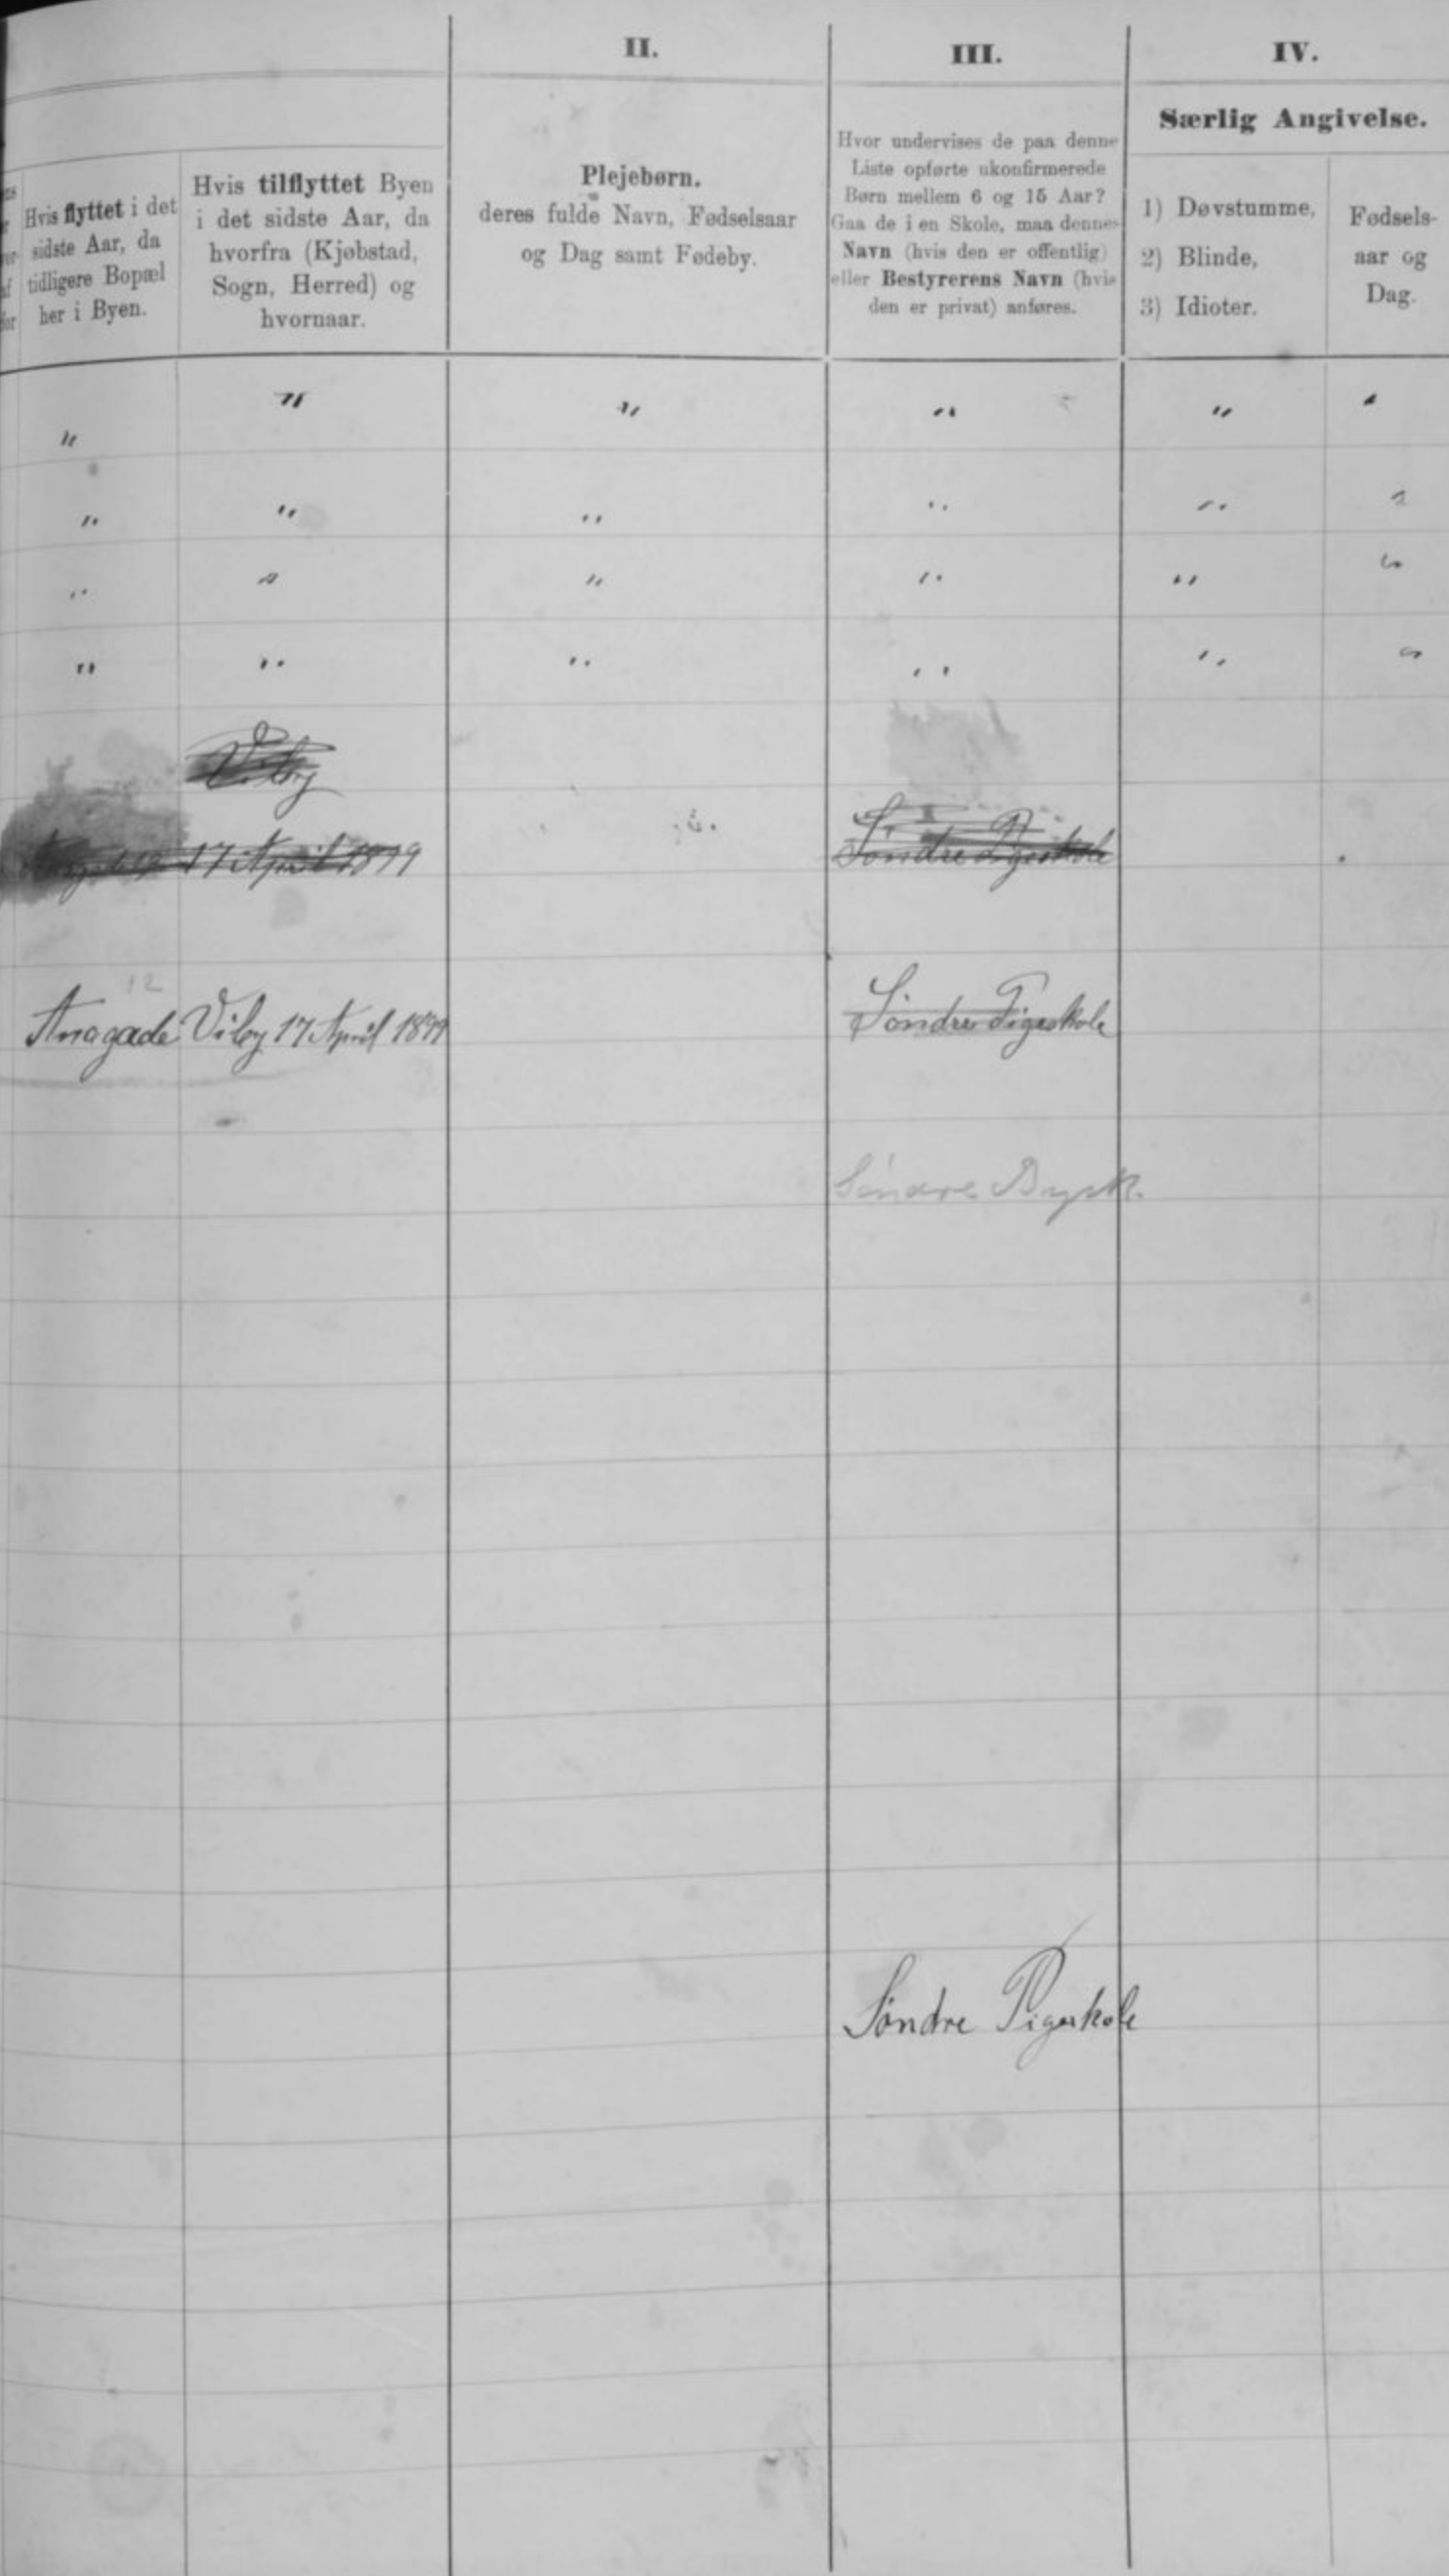 II.
III.
IV.
Særlig Angivelse.
Hvis flyttet i det
sidste Aar, da
tidligere Bopæl
her i Byen.
Hvis tilflyttet Byen
i det sidste Aar, da
hvorfra (Kjøbstad,
Sogn, Herred) og
hvornaar.
Plejebørn.
deres fulde Navn, Fødselsaar
og Dag samt Fødeby.
Hvor undervises de paa denne
Liste opførte ukonfirmerede
Børn mellem 6 og 15 Aar?
Gaa de i en Skole, maa dennes
Navn (hvis den er offentlig)
eller Bestyrerens Navn (hvis
den er privat) anføres.
1) Døvstumme,
2) Blinde,
3) Idioter.
Fødsels-
aar og
Dag.
" " " " " "
" " " " " "
" " " " " "
" " " " " "
Viby
17 April 1899 Søndre Pigeskole
12
Anagade Viby 17 April 1899 Søndre Pigeskole
Søndre Bysk.
Søndre Pigeskole